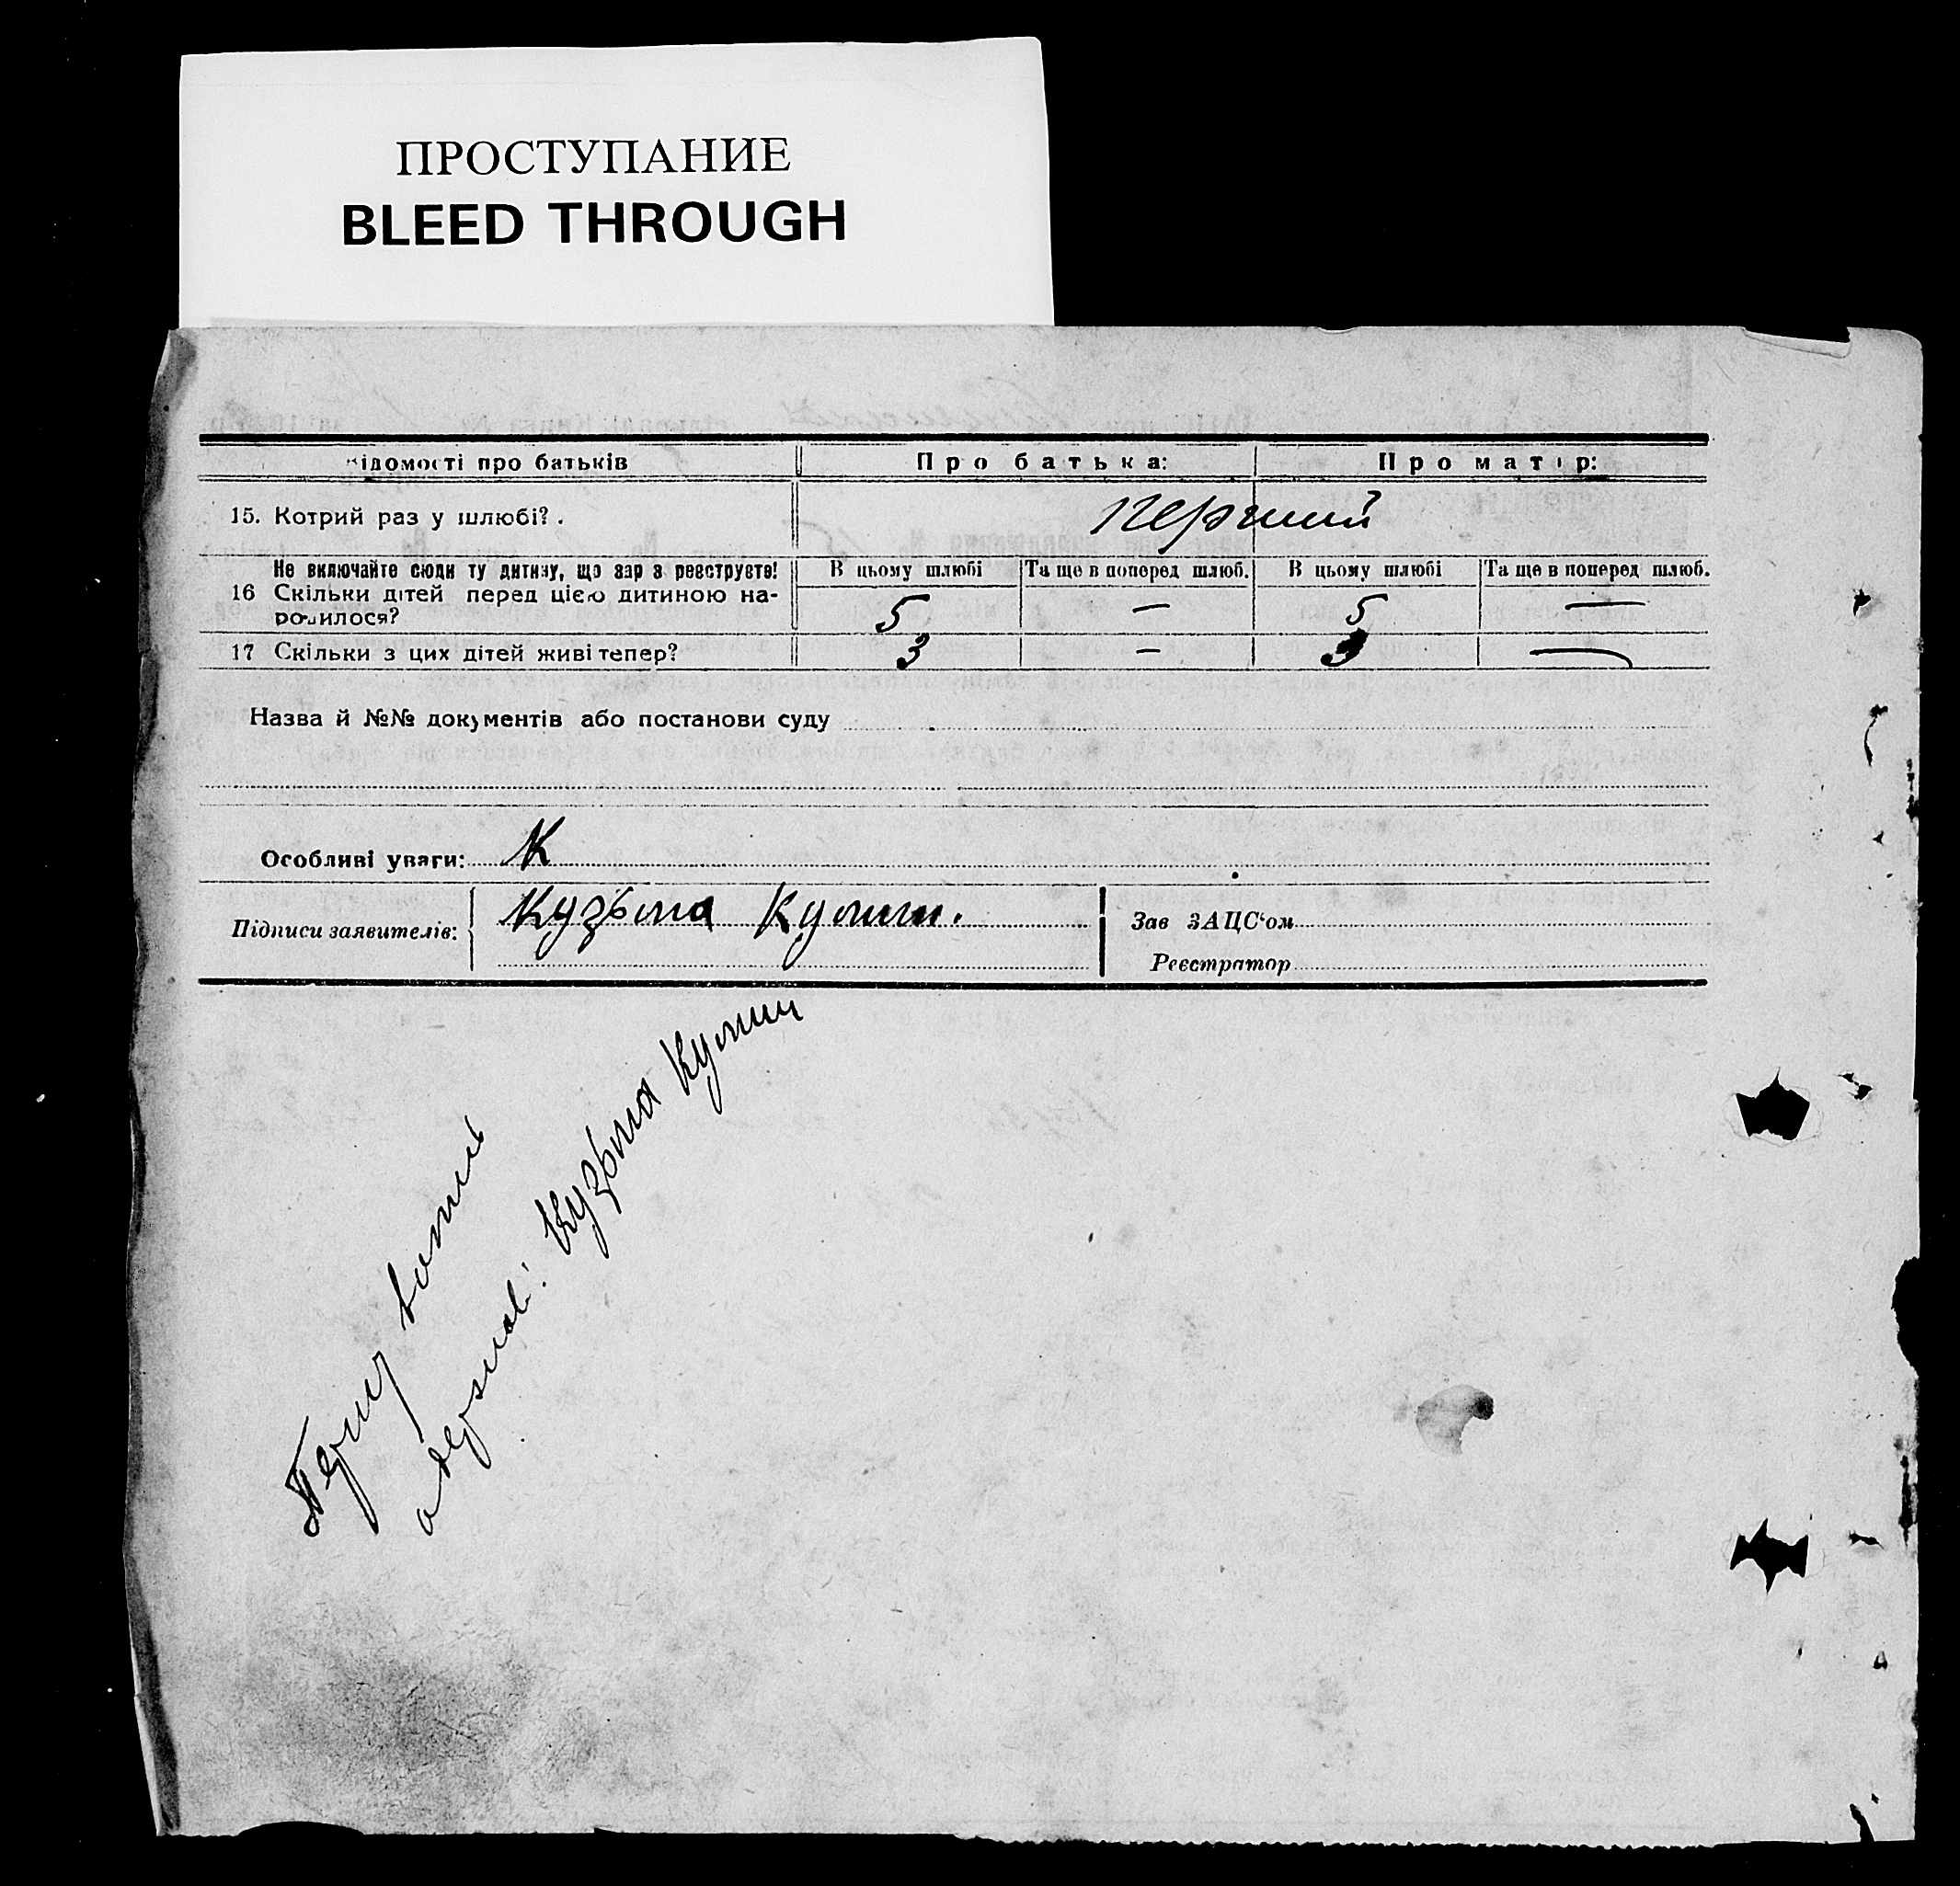 ПРОСТУПАНИЕ
BLEED THROUGH
ідомості про батьків Про батька: Про матір:
15. Котрий раз у шлюбі? . перший
Не включайте сюди ту дитину, що зараз реєструєте! В цьому шлюбі Та ще в поперед шлюб. В цьому шлюбі Та ще в поперед шлюб.
16 Скільки дітей перед цією дитиною на-
родилося? 5 — 5 —
17 Скільки з цих дітей живі тепер? 3 — 3 —
Назва й №№ документів або постанови суду
Особливі уваги: К
Підписи заявителів: Кузьма Кулиш. Зав ЗАЦС‘ом
Реєстратор
Першу
одержав: Кузьма Кулиш